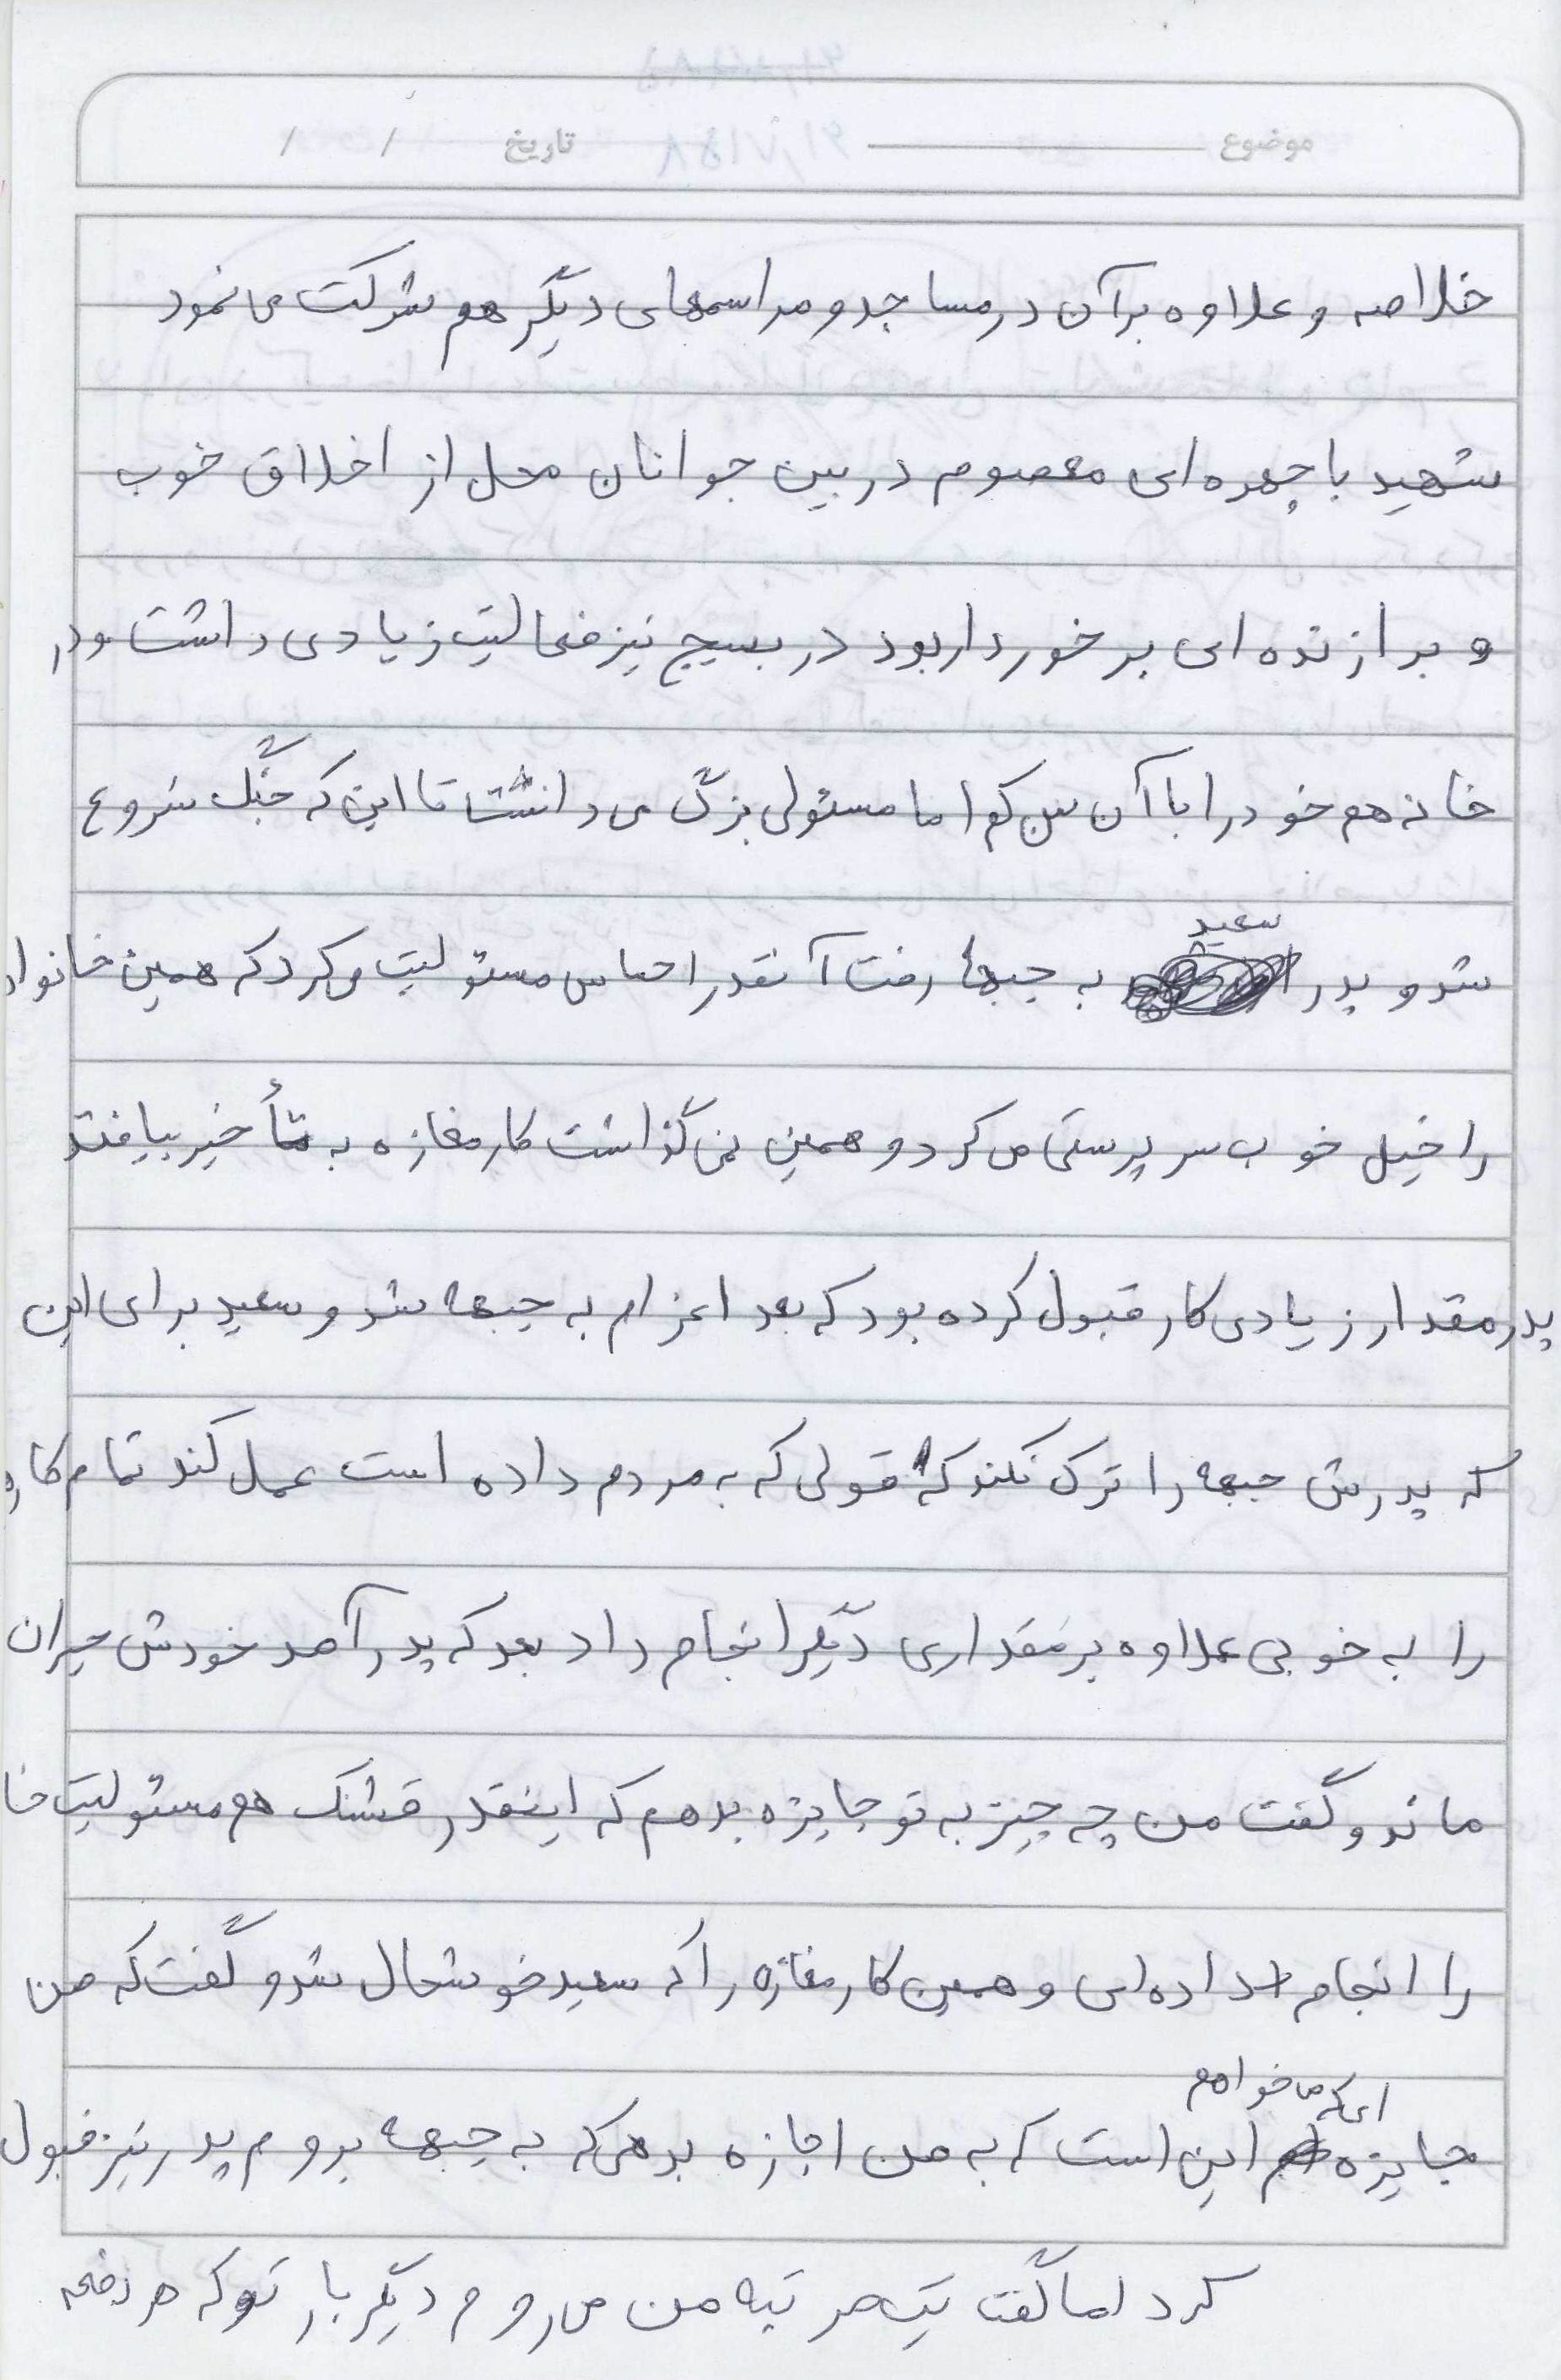 موضوع تاریخ / /
خلاصه و علاوه بر آن در مساجد و مراسمهای دیگر هم شرکت می نمود
شهید با چهره ای معصوم در بین جوانان محل از اخلاق خوب
و برازنده ای برخوردار بود در بسیج نیز فعالیت زیادی داشت و در
خانه هم خود را با آن سن کم اما مسئولی بزرگ می دانشت تا این که جنگ شروع
شد و پدر سعید به جبهه رفت آنقدر احساس مسئولیت می کرد که همین خانواده
را خیلی خوب سرپرستی می کرد و همین نمی گذاشت کار مغازه به تأخیر بیافتد
پدر مقدار زیادی کار قبول کرده بود که بعد اعزام به جبهه شد و سعید برای این
که پدرش جبهه را ترک نکند که قولی که به مردم داده است عمل کند تمام کار
را به خوبی علاوه بر مقداری دیگر انجام داد بعد که پدر آمد خودش حیران
ماند و گفت من چه چیز به تو جایزه بدهم که اینقدر قشنگ هم مسئولیت خا
را انجام داده ای و همین کار مغازه را که سعید خوشحال شد و گفت که من
جایزه ای که می خواهم این است که به من اجازه بدهی که به جبهه بروم پدر نیز قبول
کرد اما گفت یک مرتبه من می روم دیگر بار تو که هر دفعه